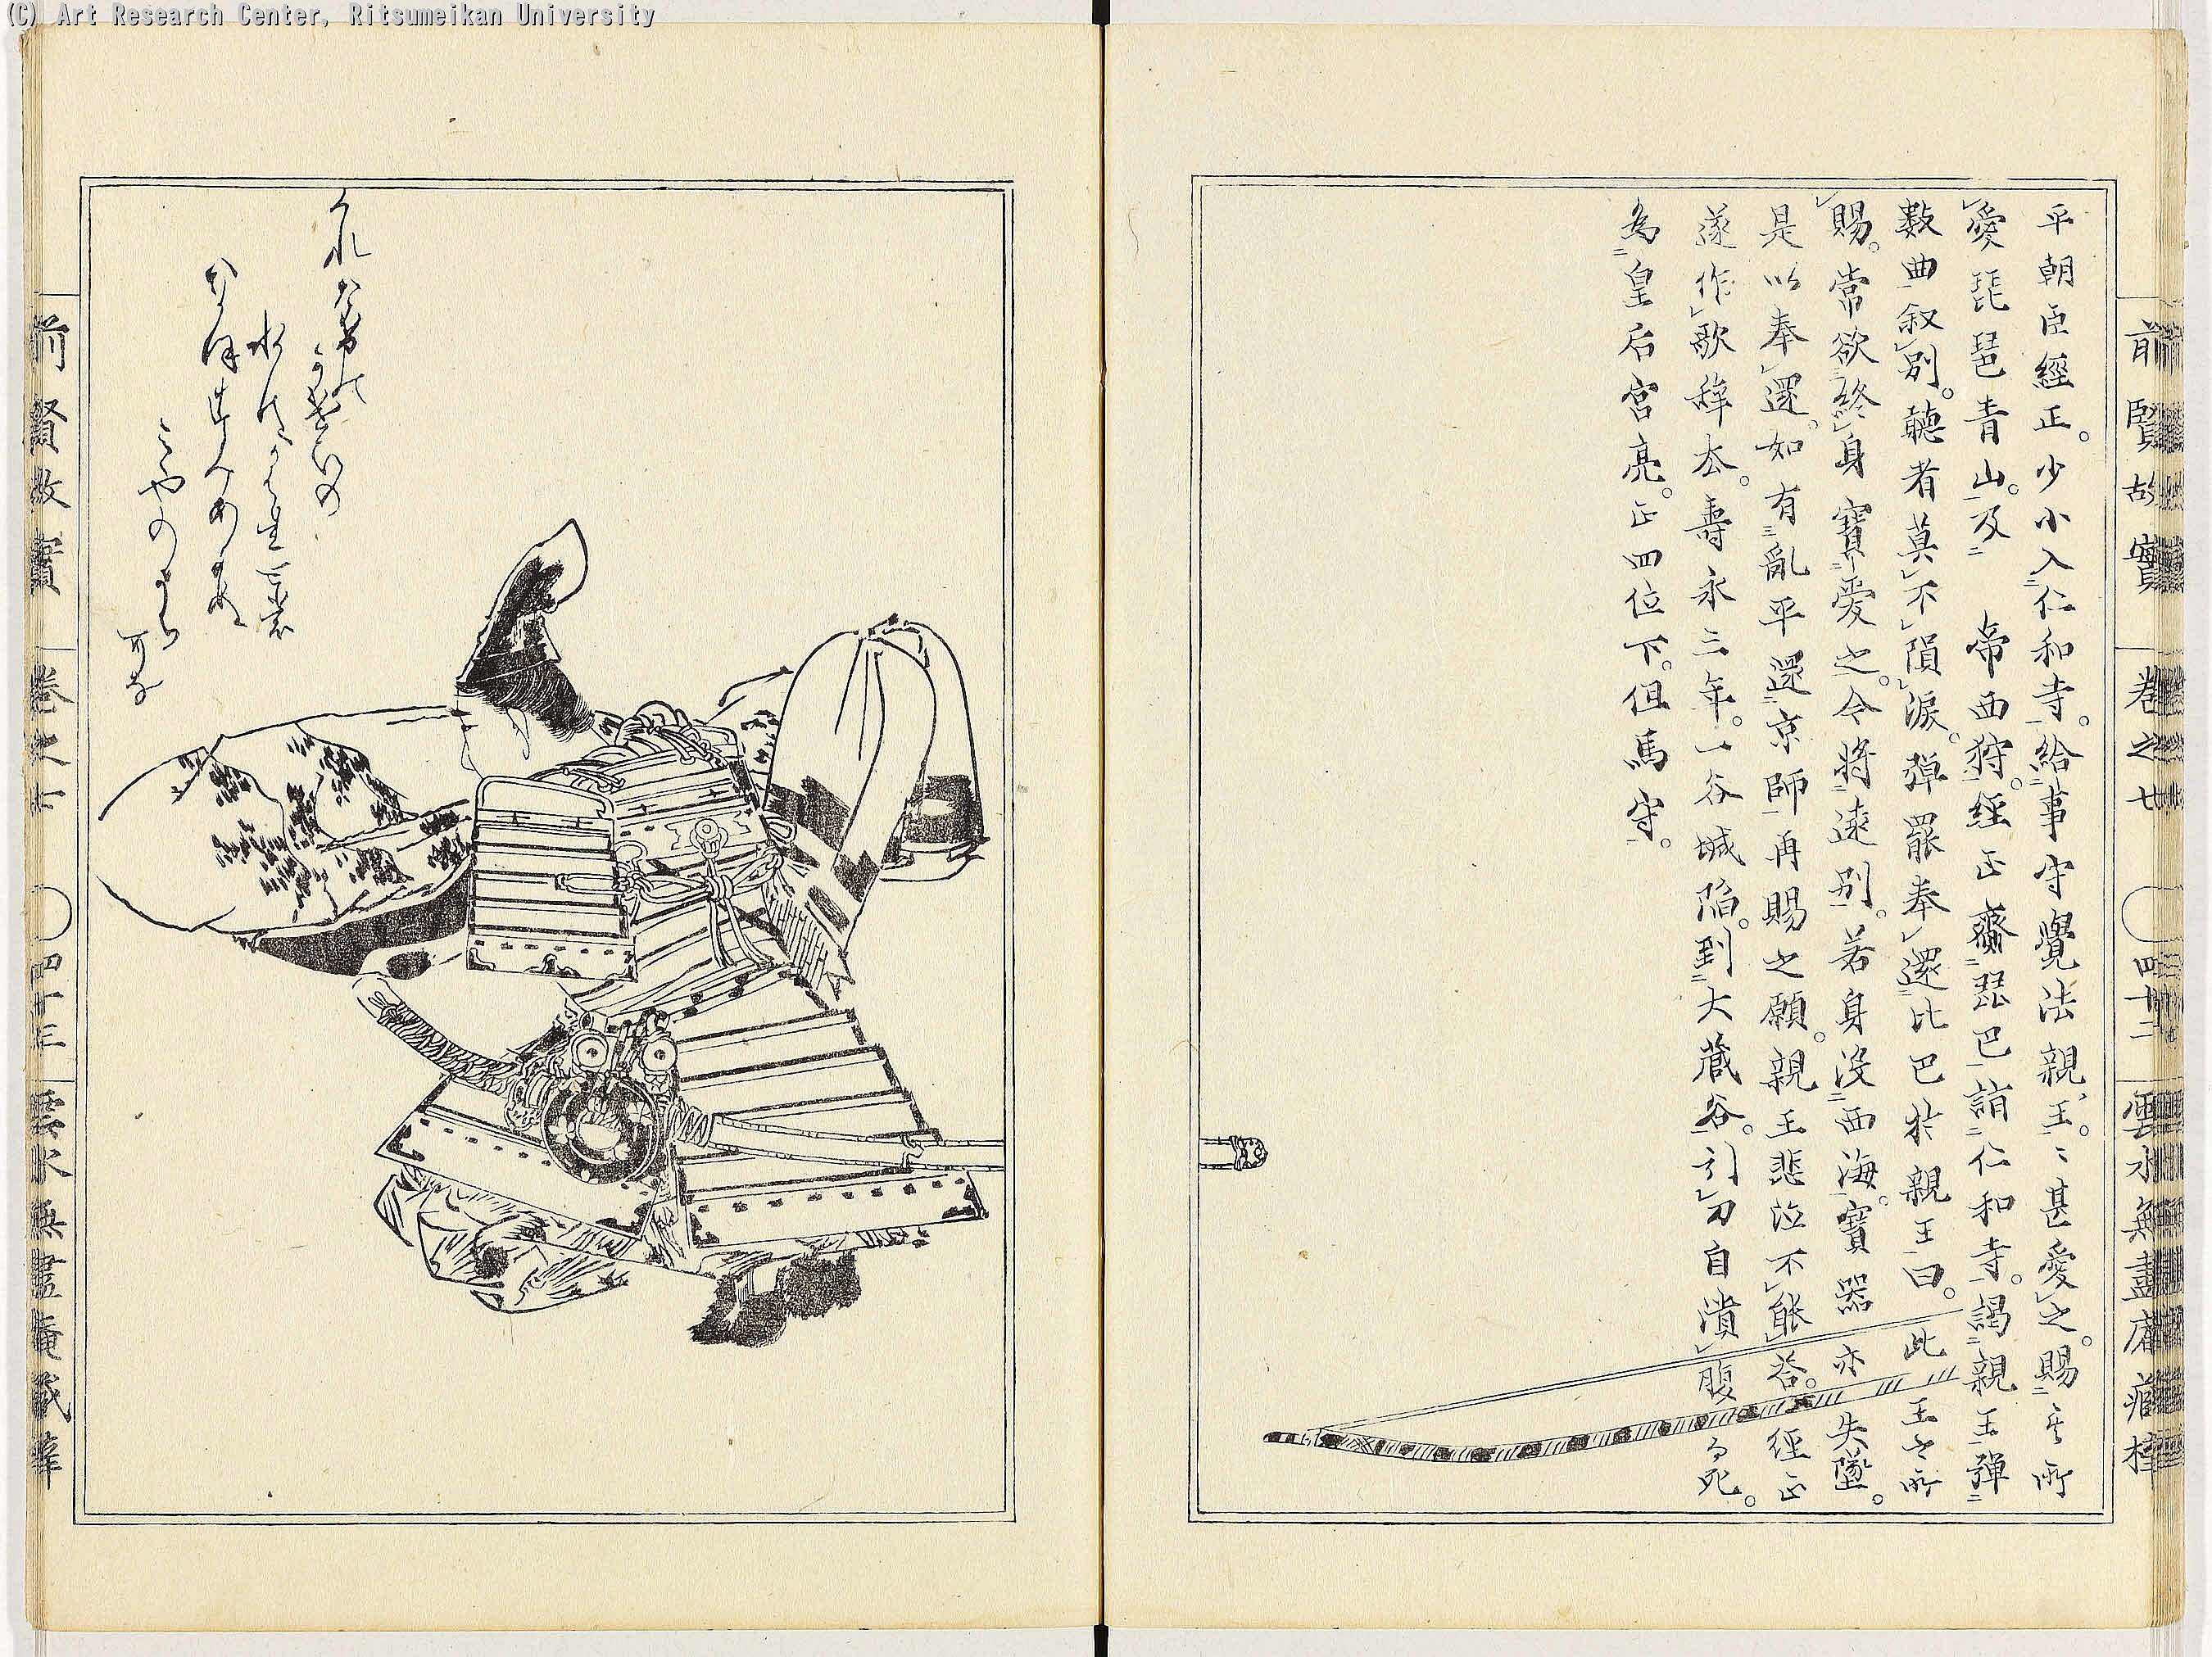 (C) Art Research Center, Ritsumeikan University
前賢故實 卷之七 四十二 雲水無盡庵藏梓
平朝臣經正。少小入仁和寺。給事守覺法親王。〻甚愛之。賜其所
愛琵琶青山。及 帝西狩。經正齎琵巴詣仁和寺。謁親王彈
數曲叙別。聽者莫不隕淚。彈罷奉還比巴於親王曰。此王之所
賜。常欲終身寶愛之。今將遠別。若身没西海。寶器亦失墜。
是以奉還。如有亂平還京師再賜之願。親王悲泣不能答。經正
遂作歌辤去。壽永三年。一谷城陷。到大藏谷。引刀自潰腹而死。
為皇后宮亮。正四位下。但馬守。
くれ竹の
かけひの
水はかはれとも
なほすみあかぬ
みやのうち
可な
前賢故實 卷之七 四十三 雲水無盡庵藏梓